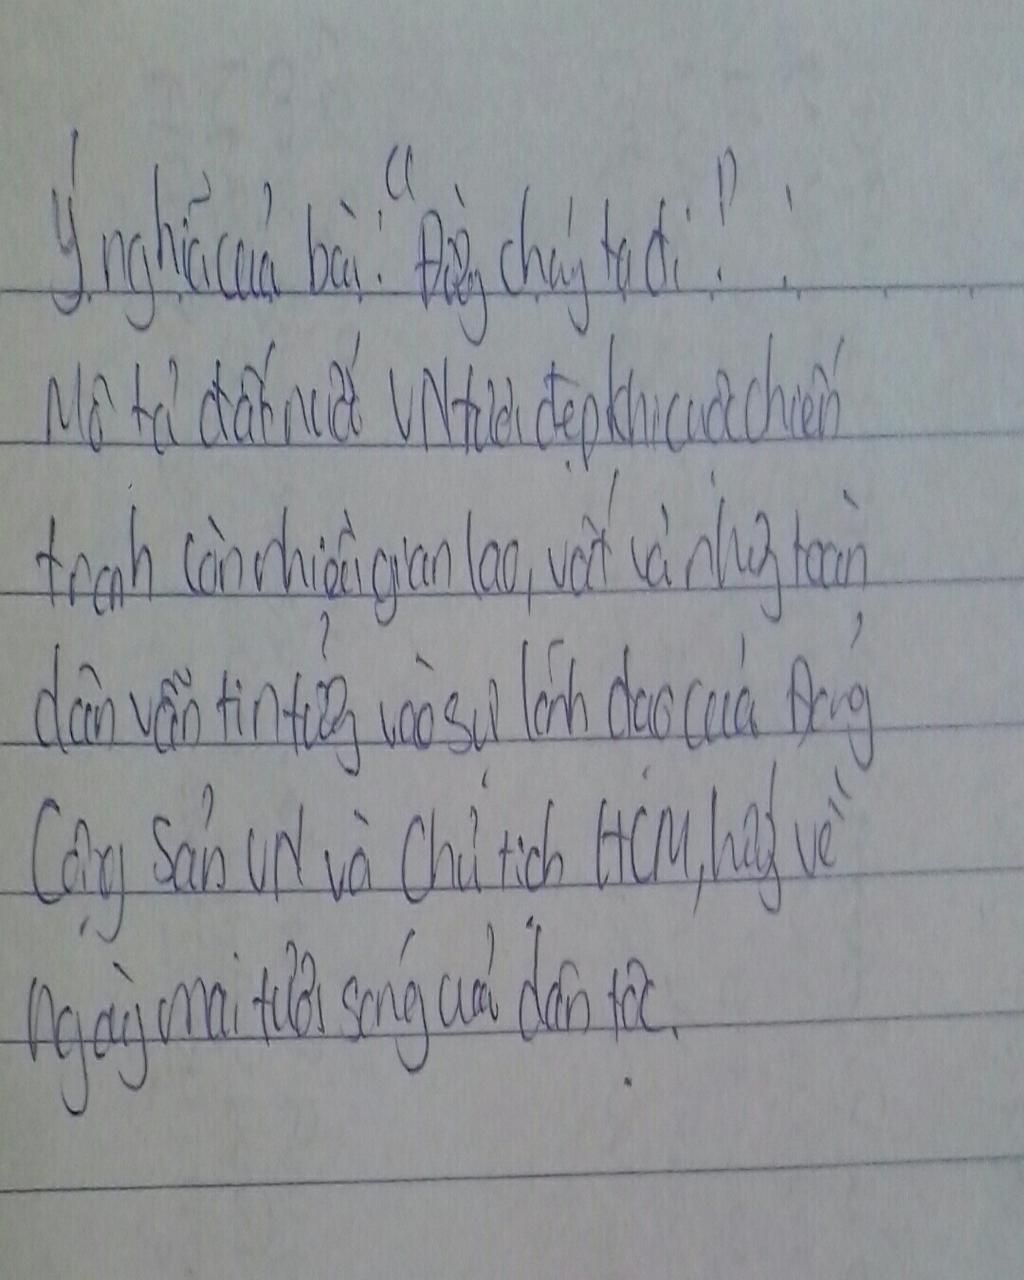 Ý nghĩa của bài: "Đường chúng ta đi":
Mô tả đất nước VN tươi đẹp khi cuộc chiến
tranh còn nhiều gian lao, vất vả nhưng toàn
dân vẫn tin tưởng vào sự lãnh đạo của Đảng
Cộng Sản VN và Chủ tịch HCM, hãy về
ngày mai tươi sáng của dân tộc.